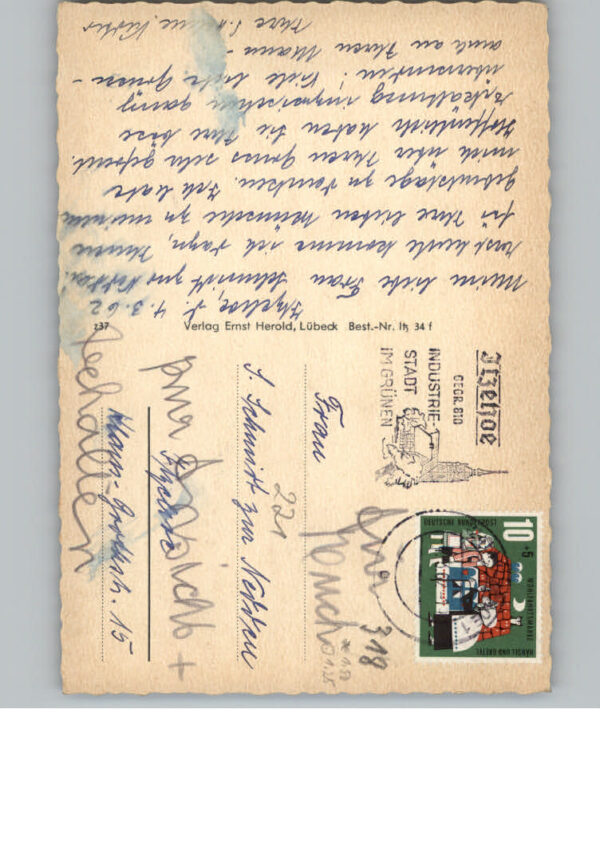 Itzehoe, d. 4.3.62
Meine liebe Frau Schmidt zur Nedden!
Erst heute komme ich dazu, Ihnen
für Ihre lieben Wünsche zu meinem
Geburtstage zu danken. Ich habe
mich über Ihren Gruss sehr gefreut.
Hoffentlich haben Sie Ihre böse
Erkältung inzwischen ganz
überwunden! Viele liebe Grüsse -
auch an Ihren Mann -
Ihre
z37
Verlag Ernst Herold, Lübeck Best.-Nr. Itz 34 f
Itzehoe
GEGR. 810
INDUSTRIE-
STADT
IM GRÜNEN
10 +5
DEUTSCHE BUNDESPOST
WOHLFAHRTSMARKE
HÄNSEL UND GRETEL
Frau
S. Schmidt zur Nedden
Itzehoe
Klaus-Groth-St. 15
221
319